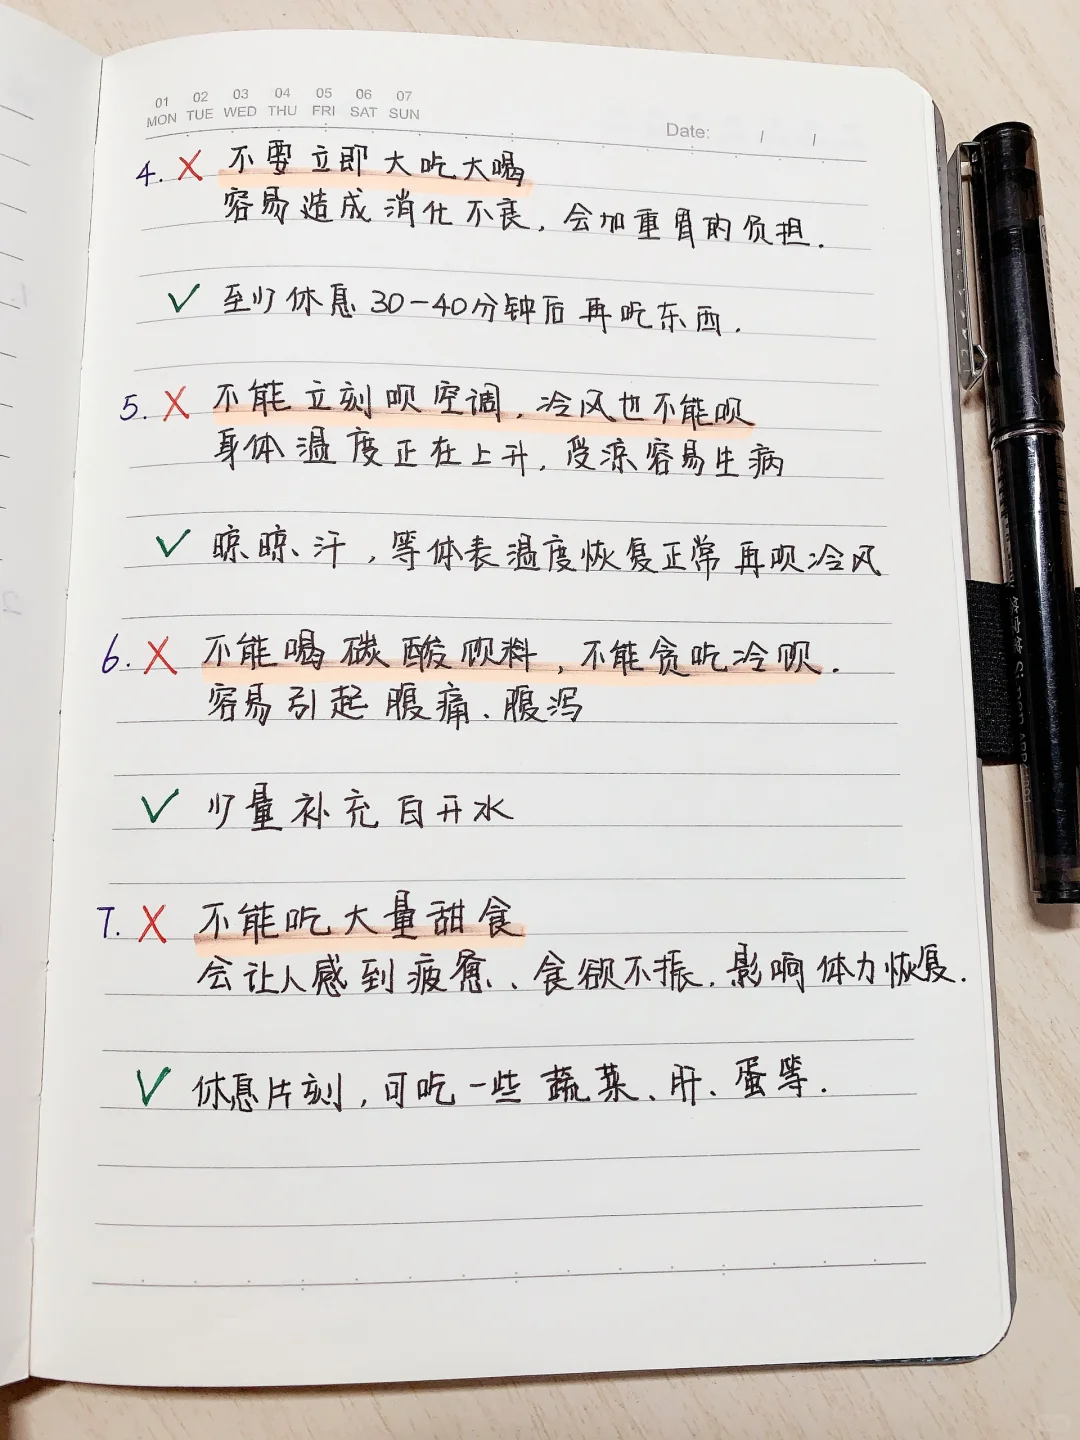 01 02 03 04 05 06 07
MON TUE WED THU FRI SAT SUN
Date: / /
4. ✗ 不要立即大吃大喝
容易造成消化不良，会加重胃的负担.
✓ 至少休息30-40分钟后再吃东西.
5. ✗ 不能立刻吹空调，冷风也不能吹
身体温度正在上升，受凉容易生病
✓ 晾晾汗，等体表温度恢复正常再吹冷风
6. ✗ 不能喝碳酸饮料，不能贪吃冷饮.
容易引起腹痛、腹泻
✓ 少量补充白开水
7. ✗ 不能吃大量甜食
会让人感到疲惫、食欲不振，影响体力恢复.
✓ 休息片刻，可吃一些蔬菜、肝、蛋等.